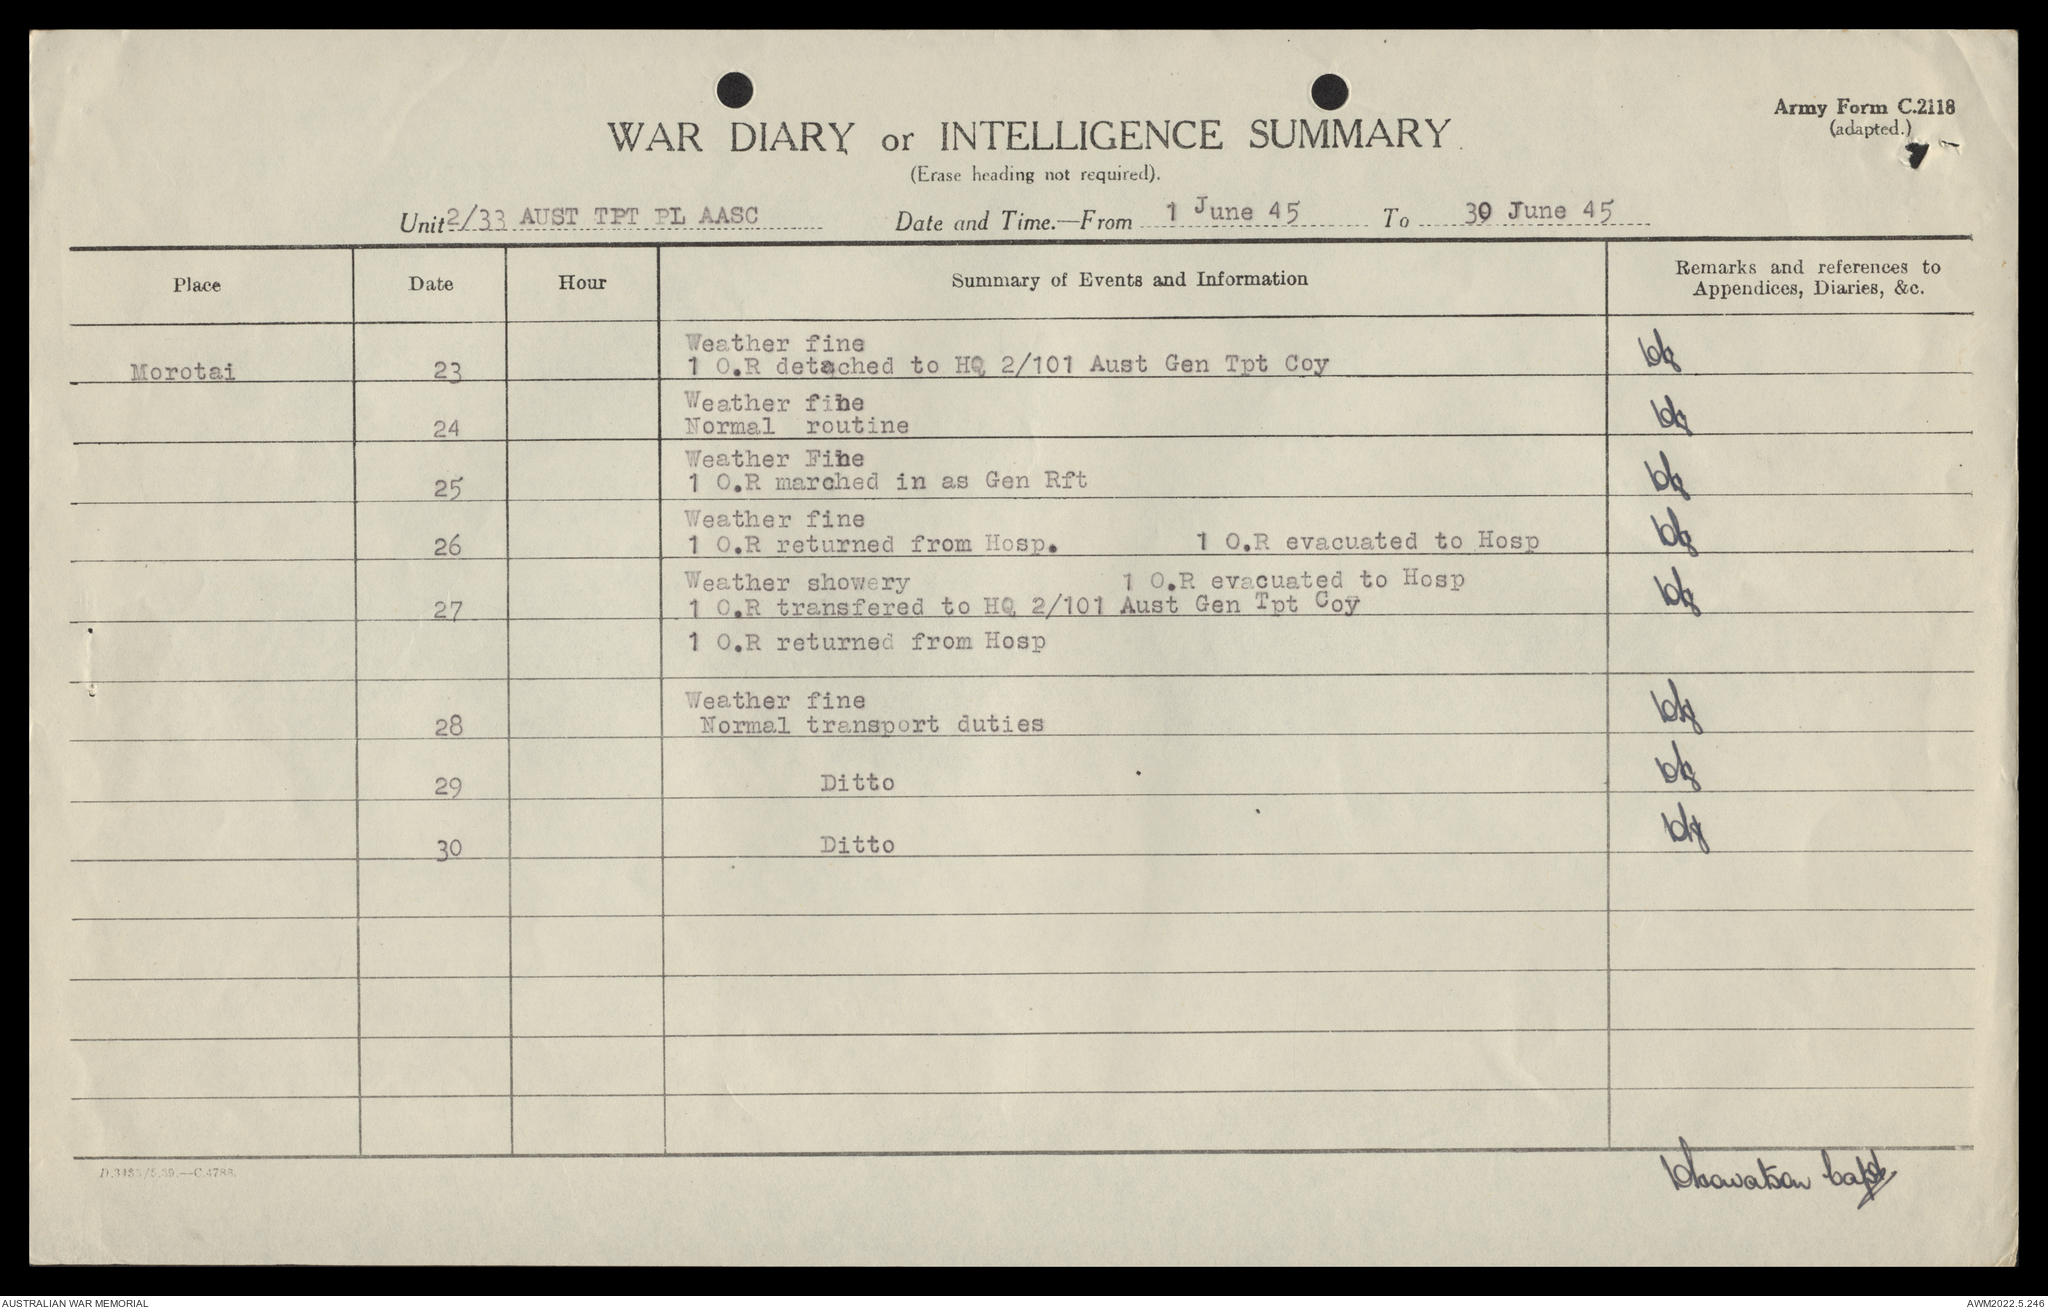 Army Form C.2118
(adapted.)
WAR DIARY or INTELLIGENCE SUMMARY.
(Erase heading not required).
Unit 2/33 AUST TPT PL AASC Date and Time.—From 1 June 45 To 30 June 45
Place Date Hour Summary of Events and Information Remarks and references to
Appendices, Diaries, &c.
Weather fine
Morotai 23 1 O.R detached to HQ 2/101 Aust Gen Tpt Coy
Weather fine
24 Normal routine
Weather Fine
25 1 O.R marched in as Gen Rft
Weather fine
26 1 O.R returned from Hosp. 1 O.R evacuated to Hosp
Weather showery 1 O.R evacuated to Hosp
27 1 O.R transfered to HQ 2/101 Aust Gen Tpt Coy
1 O.R returned from Hosp
Weather fine
28 Normal transport duties
29 Ditto
30 Ditto
Capt
AUSTRALIAN WAR MEMORIAL
AWM2022.5.246